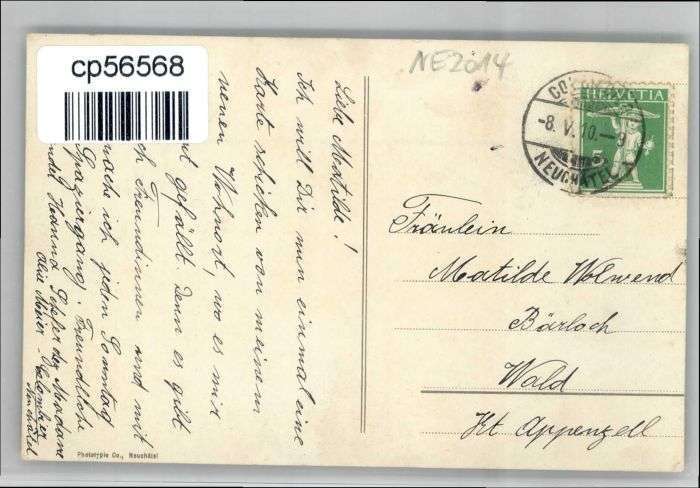 cp56568
NE2014
HELVETIA
-8.V.10.-9
NEUCHÂTEL
5
Liebe Matilde!
Ich will Dir nun einmal eine
Karte schicken von meinem
neuen Wohnort, wo es mir
gefällt. Denn es gibt
Freundinnen und mit
mache ich jeden Sonntag
Spaziergang. Freundliche
Hanna
Alice
Colombier
Neuchâtel
Fräulein
Matilde Wolwend
Bärloch
Wald
Kt. Appenzell
Phototypie Co., Neuchâtel